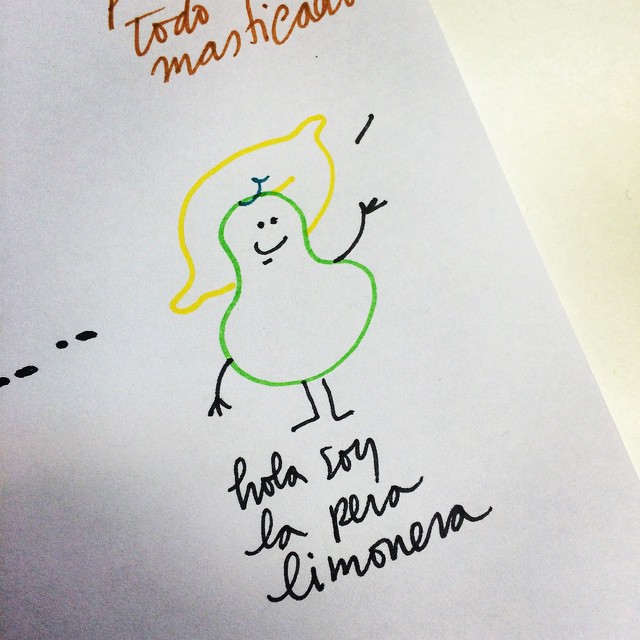 todo
masticado
hola soy
la pera
limonera